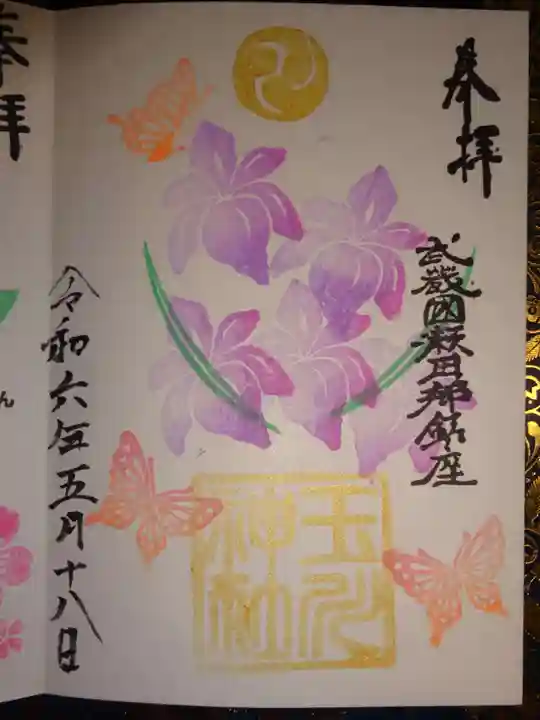 奉拝
武蔵國荏原郡鎮座
玉川
神社
令和六年五月十八日
奉拝
ん